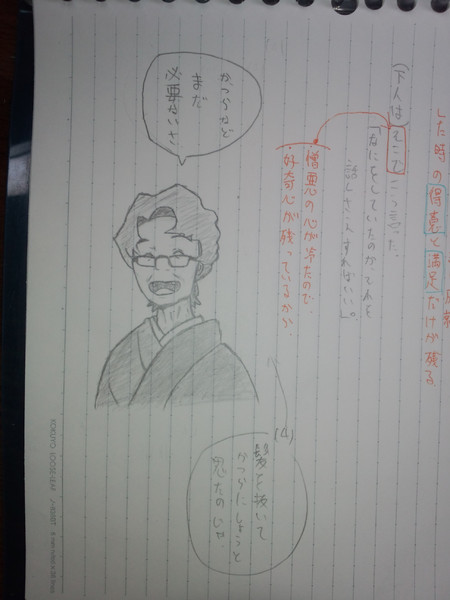 した時の得意と満足だけが残る
(下人は)そこでこう言った。
「なにをしていたのか、それを
話しさえすればいい」。
憎悪の心が冷たので、
好奇心が残っているから、
かつらなど
まだ
必要ないさ
(4)
髪を抜いて
かつらにしようと
思たのじゃ
KOKUYO LOOSE-LEAF